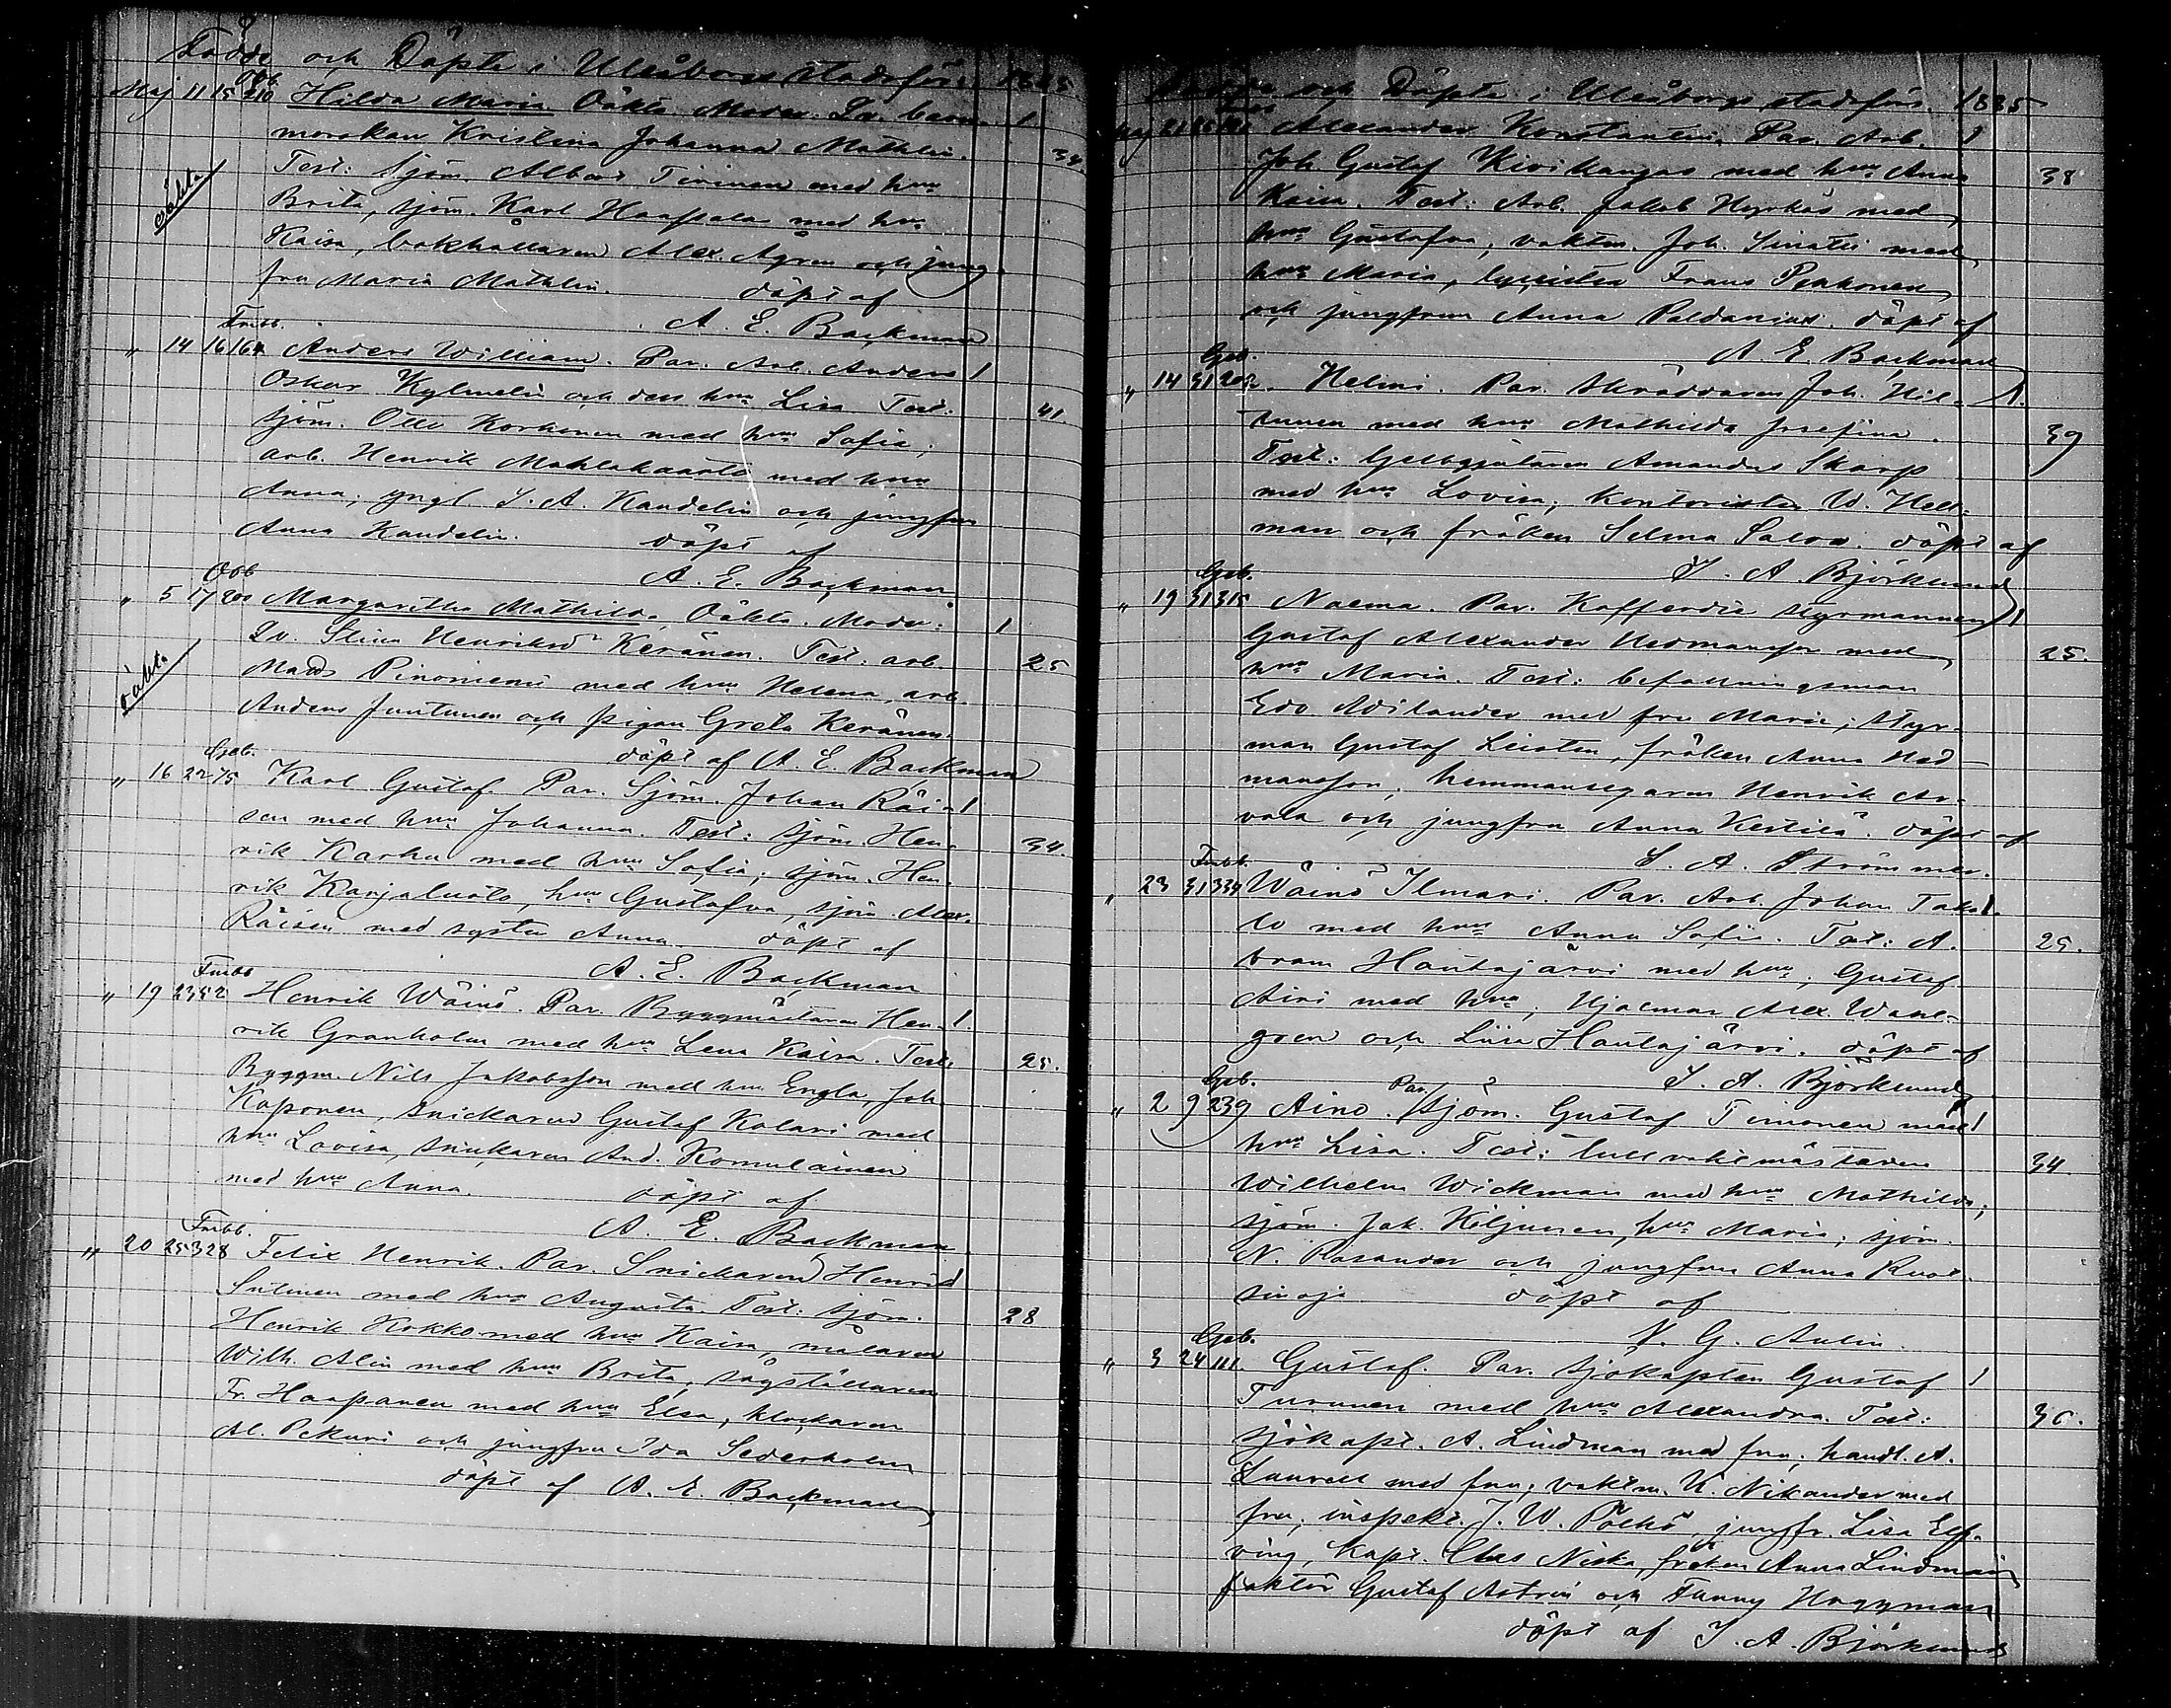 Födde och Döpta i Uleåborgs stadsförs. 1885.
Obb.
Maj 11 15 210 Hilda Maria Oäkta. Moder: Lv. barn- 1
morskan Kristina Johanna Mathlin. 34.
oäkta
Test: Sjöm. Albert Tirinen med hu
Brita, sjöm. Karl Haapala med hu
Kaisa, bokhållaren Alex. Ågren och jung-
fru Maria Mathlin. döpt af
A. E. Backman
Fmbb.
" 14 16 164 Anders William. Par. Arb. Anders 1
Oskar Kylmelin och dess hu Lisa Test. 41.
sjöm. Otto Korhonen med hu Sofia;
arb. Henrik Mahlakaarto med hu
Anna; yngl. J. A. Kandelin och jungfru
Anna Kandelin. döpt af
A. E. Backman
Obb
" 5 17 200 Margaritha Mathilda, Oäkta. Moder: 1
Lv. Stina Henriksdr Keränen. Test: arb. 25
oäkta
Mads Pinoniemi med hu Helena, arb.
Anders Juntunen och pigan Greta Keränen.
döpt af A. E. Backman
Geb.
" 16 22 75 Karl Gustaf. Par. Sjöm. Johan Räi- 1
sen med hu Johanna. Test: sjöm. Hen- 34.
rik Karhu med hu Sofia; sjöm. Hen-
rik Karjaluoto, hu Gustafva, sjöm. Alex.
Räisen med syster Anna. döpt af
A. E. Backman
Fmbb
" 19 23 52 Henrik Wäinö. Par. Byggmästaren Hen- 1.
rik Granholm med hu Lena Kaisa. Test: 25.
Byggm. Nils Jakobsson med hu Engla, Joh.
Kaponen, snickaren Gustaf Kolari med
hu Lovisa, snickaren And. Komulainen
med hu Anna. döpt af
A. E. Backman
Fmbb.
" 20 25 328 Felix Henrik. Par. Snickaren Henrik 1
Sutinen med hu Augusta. Test: sjöm. 28
Henrik Kokko med hu Kaisa, målaren
Wilh. Alin med hu Brita, sågställaren
Fr. Haapanen med hu Elsa, klockaren
Al. Pekuri och jungfru Ida Sederholm
döpt af A. E. Backman
och Döpta i Uleåborgs stadsförs. 1885
Maj 21 Alexander Konstantin. Par. Arb. 1
Joh. Gustaf Kivikangas med hu Anna 38
Kaisa. Test: Arb. Jakob Hyrkäs med
hu Gustafva, vaktm. Joh. Sinatti med
hu Maria, lyceisten Frans Pekkonen
och jungfrun Anna Paldanius. döpt af
A. E. Backman
Geb.
" 14 31 202. Helmi. Par. Skräddaren Joh. Hil- 1.
tunen med hu Mathilda Josefina. 39
Test: Gelbgjutaren Amandus Skarp
med hu Lovisa; kontoristen W. Hell-
man och fröken Selma Salon. döpt af
J. A. Björklund
Geb.
" 19 31 315 Naema. Par. Kofferdie styrmannen 1
Gustaf Alexander Hedmansson med 25.
hu Maria. Test: befallningsman
Edv. Avilander med fru Maria; styr-
man Gustaf Leisten, fröken Anna Hed-
mansson; hemmansegaren Henrik Ar-
vola och jungfru Anna Kestilä. döpt af
L. A. Strömmer.
Fmbb.
" 23 31 334 Wäinö Ilmari. Par. Arb. Johan Taka- 1.
lo med hu Anna Sofia. Test: A- 25.
bram Hautajärvi med hu; Gustaf
Airi med hu; Hjalmar Alex Wahl-
gren och Liisa Hautajärvi. döpt af
J. A. Björklund
Geb.
" 2 9 239 Aino. Par. sjöm. Gustaf Timonen med 1
hu Lisa. Test: tullvaktmästaren 34
Wilhelm Wickman med hu Mathilda;
sjöm. Jak. Kiljunen, hu Maria; sjöm.
N. Rosander och jungfru Anna Ruot-
sinoja döpt af
N. G. Aulin.
Geb.
" 3 24 111. Gustaf. Par. Sjökapten Gustaf 1
Turunen med hu Alexandra. Test: 30.
sjökapt. A. Lindman med fru; handl. A.
Laurell med fru; vaktm. K. Nikander med
fru; inspekt. J. W. Pölhö, jungfr. Lisa Elf-
ving, Kapt. Claes Niska, fröken Anna Lindman
faktor Gustaf Astrén och Fanny Häggman
döpt af J. A. Björklund